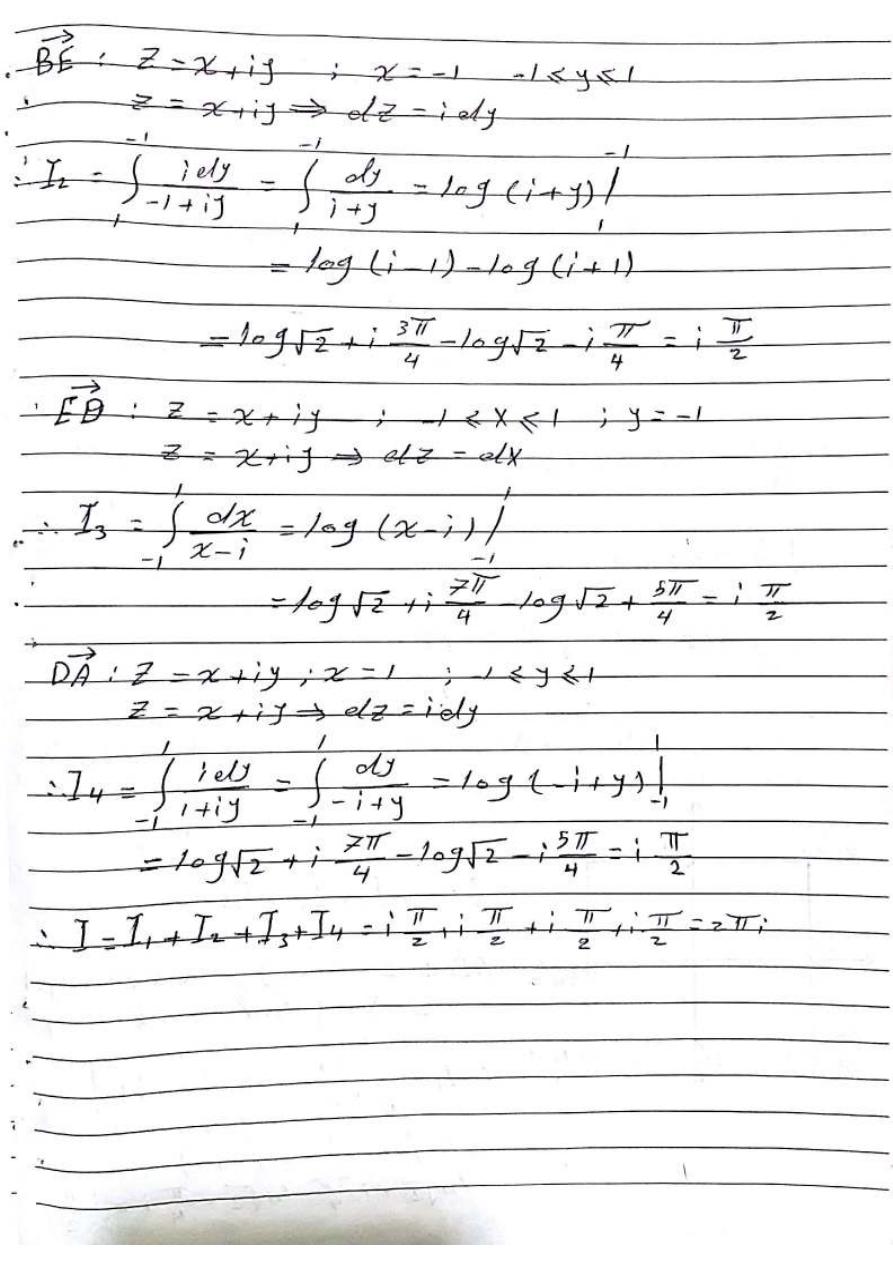 BE→ : Z = x+iy ; x = -1 -1 ≤ y ≤ 1
z = x+iy ⇒ dz = idy
∴ I₂ = ∫₁⁻¹ idy/(-1+iy) = ∫₁⁻¹ dy/(i+y) = log (i+y) |₁⁻¹
= log (i-1) - log (i+1)
= log√2 + i 3π/4 - log√2 - i π/4 = i π/2
ED→ : z = x+iy ; -1 ≤ x ≤ 1 ; y = -1
z = x+iy ⇒ dz = dx
∴ I₃ = ∫₋₁¹ dx/(x-i) = log (x-i) |₋₁¹
= log √2 + i 7π/4 - log √2 + 5π/4 = i π/2
DA→ : Z = x+iy ; x = 1 ; -1 ≤ y ≤ 1
z = x+iy ⇒ dz = idy
∴ I₄ = ∫₋₁¹ idy/(1+iy) = ∫₋₁¹ dy/(-i+y) = log (-i+y) |₋₁¹
= log√2 + i 7π/4 - log√2 - i 5π/4 = i π/2
∴ I = I₁ + I₂ + I₃ + I₄ = i π/2 + i π/2 + i π/2 + i π/2 = 2πi